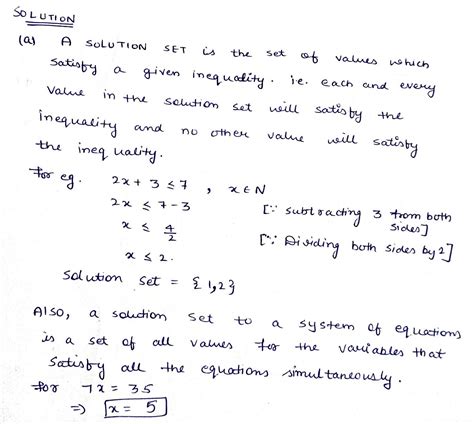 SOLUTION
(a) A SOLUTION SET is the set of values which
satisfy a given inequality. ie. each and every
value in the solution set will satisfy the
inequality and no other value will satisfy
the inequality.
for eg. 2x + 3 ≤ 7 , x ∈ N
2x ≤ 7 - 3 [∵ subtracting 3 from both sides]
x ≤ 4/2 [∵ Dividing both sides by 2]
x ≤ 2.
Solution set = {1,2}
Also, a solution set to a system of equations
is a set of all values for the variables that
satisfy all the equations simultaneously.
for 7x = 35
⇒ x = 5